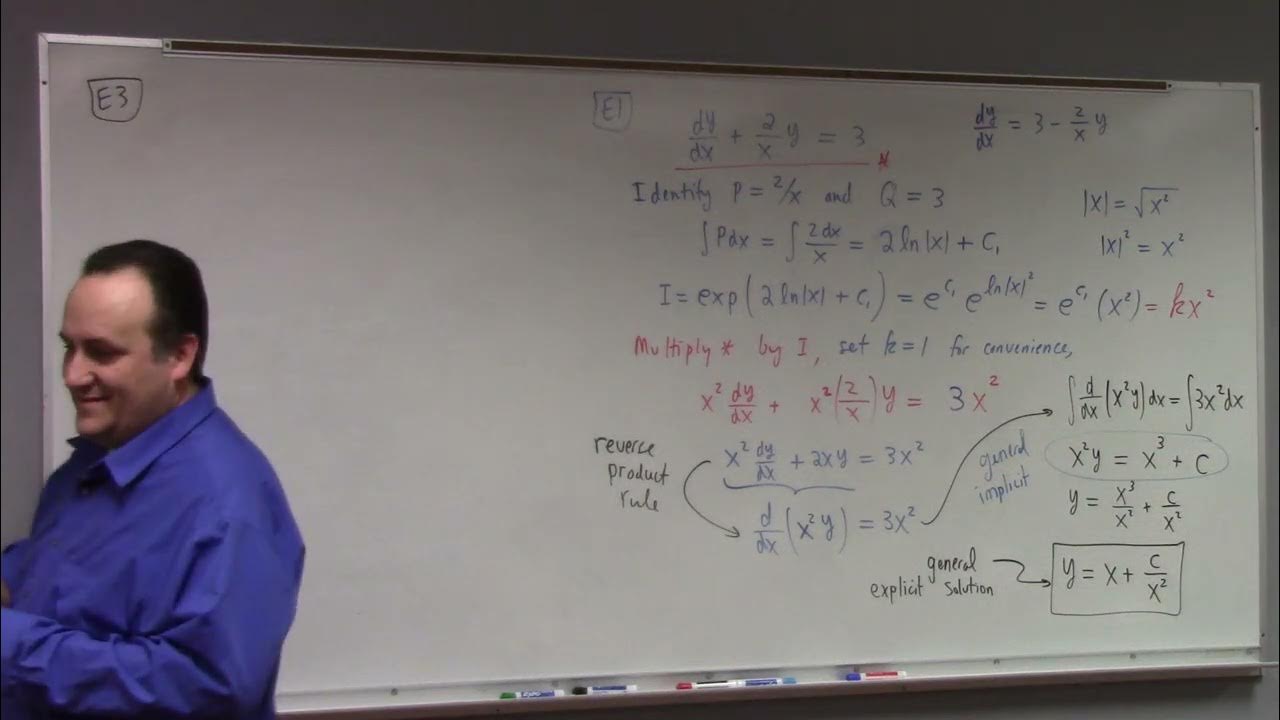 E3
E1
dy/dx + 2/x y = 3 *
dy/dx = 3 - 2/x y
Identify P = 2/x and Q = 3
|x| = √x²
∫Pdx = ∫2dx/x = 2 ln|x| + C₁
|x|² = x²
I = exp(2 ln|x| + C₁) = e^C₁ e^ln|x|² = e^C₁ (x²) = kx²
Multiply * by I, set k=1 for convenience,
x² dy/dx + x²(2/x)y = 3x²
reverse
product
rule
x² dy/dx + 2xy = 3x²
d/dx (x²y) = 3x²
∫ d/dx (x²y) dx = ∫3x²dx
general
implicit
x²y = x³ + C
y = x³/x² + C/x²
general
explicit solution
y = x + C/x²